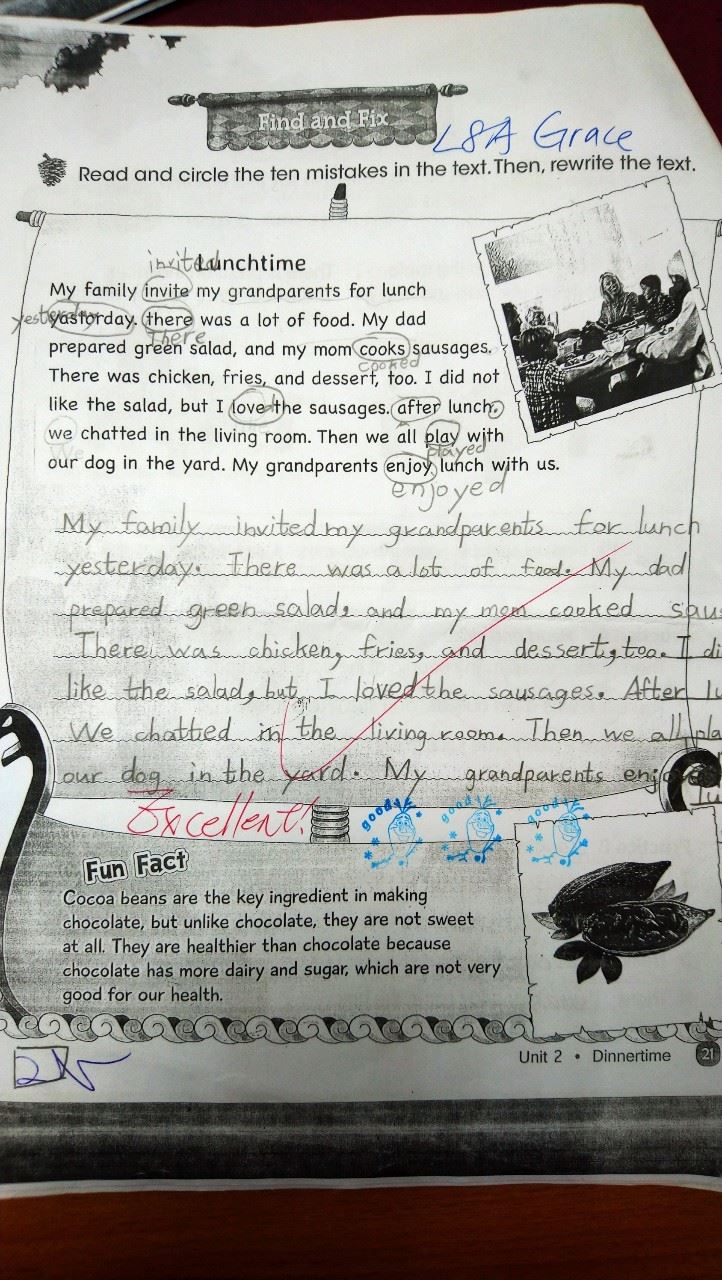 Find and Fix
L8A Grace
Read and circle the ten mistakes in the text. Then, rewrite the text.
invited
Lunchtime
My family invite my grandparents for lunch
yesterday
yastorday. there was a lot of food. My dad
There
prepared green salad, and my mom cooks sausages.
cooked
There was chicken, fries, and dessert, too. I did not
like the salad, but I love the sausages. after lunch.
we chatted in the living room. Then we all play with
We
played
our dog in the yard. My grandparents enjoy lunch with us.
enjoyed
My family invited my grandparents for lunch
yesterday. There was a lot of food. My dad
prepared green salad, and my mom cooked saus
There was chicken, fries, and dessert, too. I di
like the salad, but I loved the sausages. After lu
We chatted in the living room. Then we all pla
our dog in the yard. My grandparents enjoyed
lu
Excellent!
good
good
good
Fun Fact
Cocoa beans are the key ingredient in making
chocolate, but unlike chocolate, they are not sweet
at all. They are healthier than chocolate because
chocolate has more dairy and sugar, which are not very
good for our health.
Unit 2 • Dinnertime 21